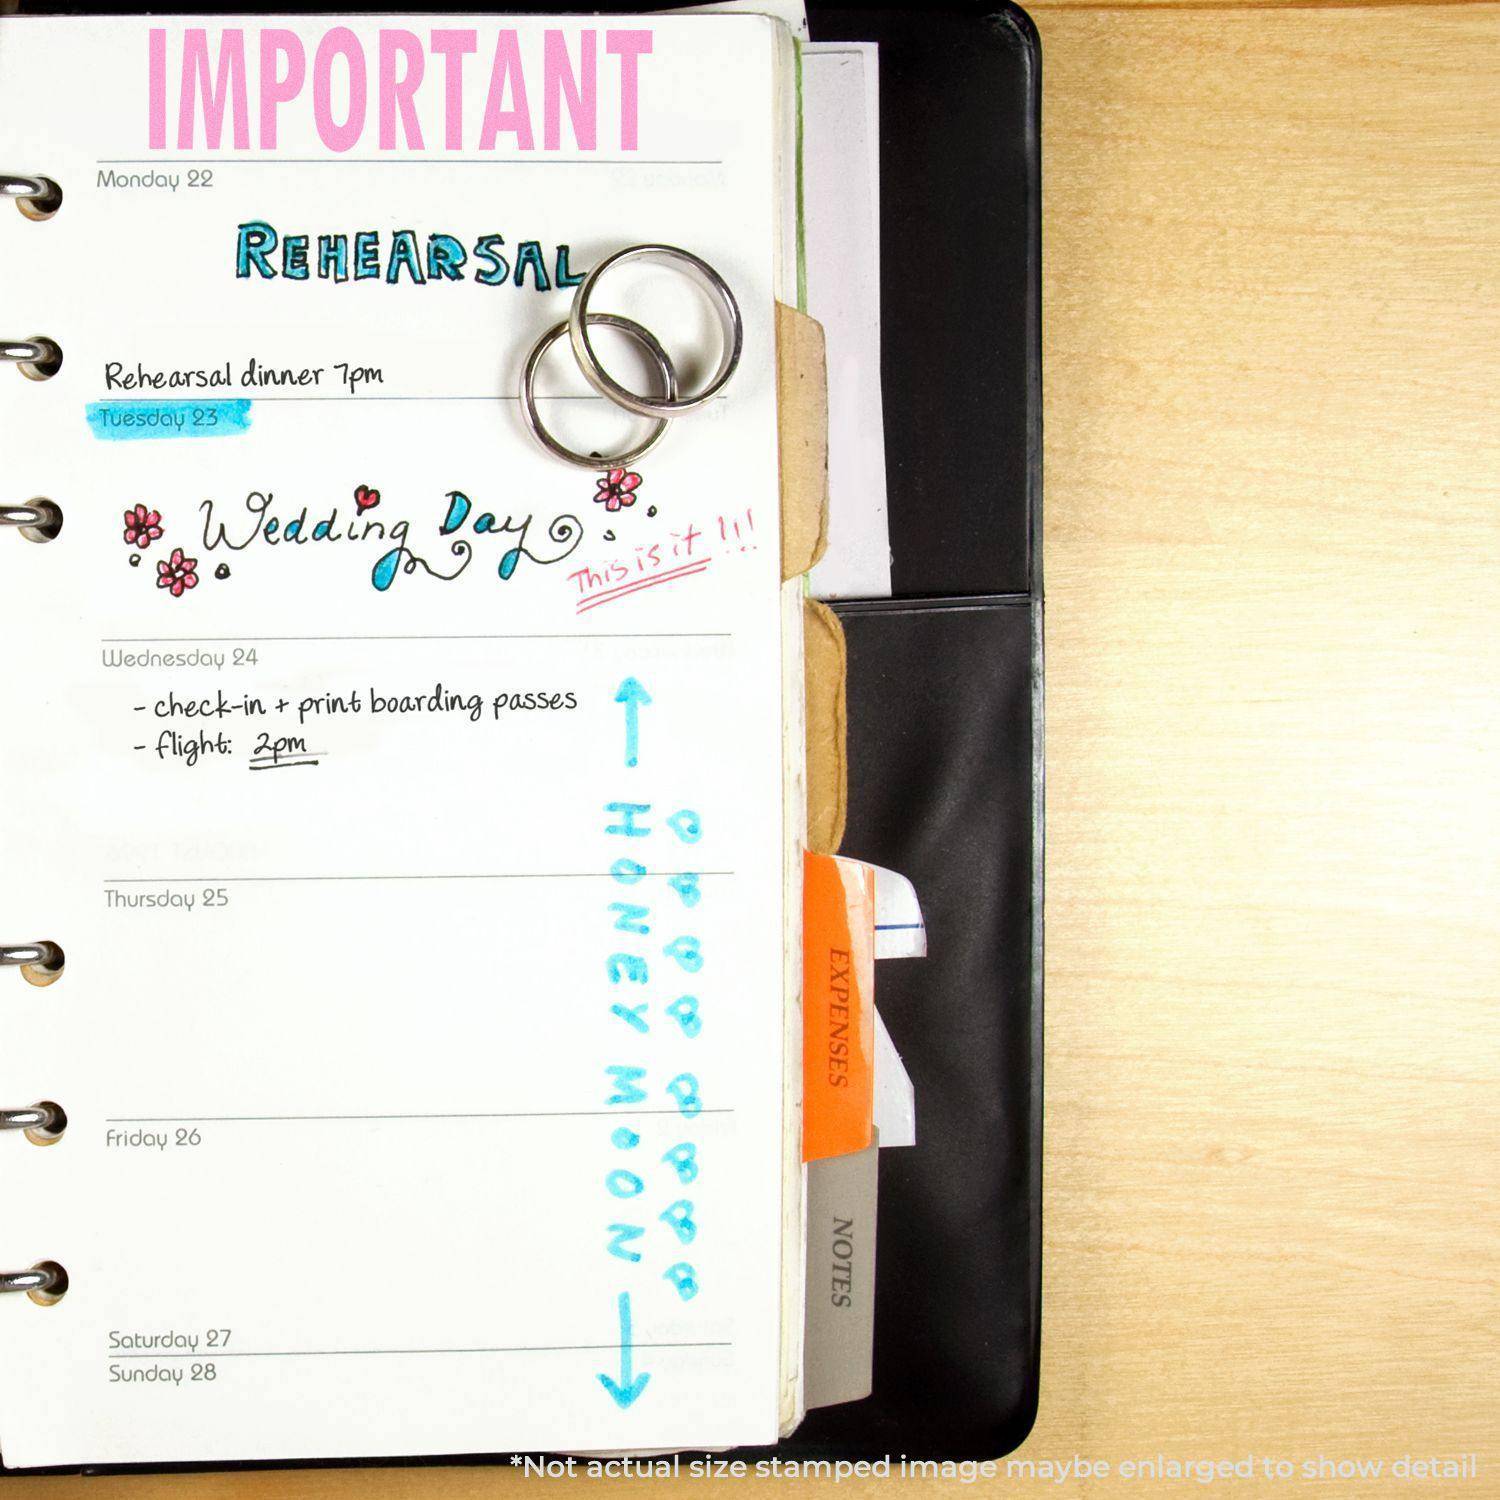 IMPORTANT
Monday 22
REHEARSAL
Rehearsal dinner 7pm
Tuesday 23
Wedding Day
This is it !!!
Wednesday 24
- check-in + print boarding passes
- flight: 2pm
HONEY MOON
Thursday 25
EXPENSES
Friday 26
NOTES
Saturday 27
Sunday 28
*Not actual size stamped image maybe enlarged to show detail